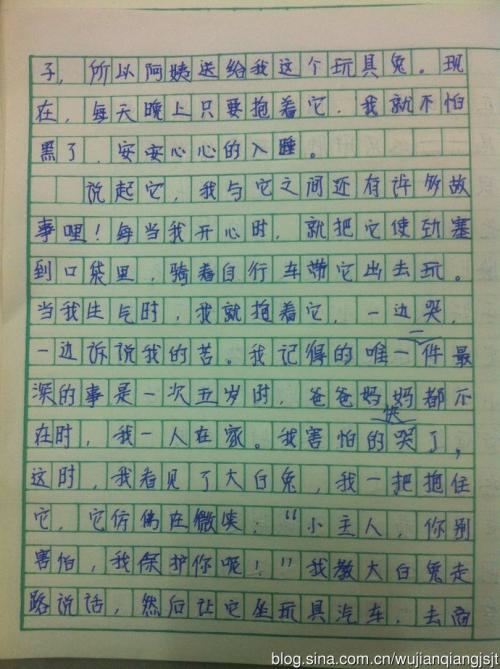 子，所以阿姨送给我这个玩具兔。现
在，每天晚上只要抱着它，我就不怕
黑了，安安心心的入睡。
说起它，我与它之间还有许多故
事哩！每当我开心时，就把它使劲塞
到口袋里，骑着自行车带它出去玩。
当我生气时，我就抱着它，一边哭，
一边诉说我的苦。我记得的唯一一件最
深的事是一次五岁时，爸爸妈妈都不
在时，我一人在家。我害怕的快哭了，
这时，我看见了大白兔，我一把抱住
它，它仿佛在微笑：“小主人，你别
害怕，我保护你呢！”我教大白兔走
路说话，然后让它坐玩具汽车，去商
blog.sina.com.cn/wujianqiangjsjt